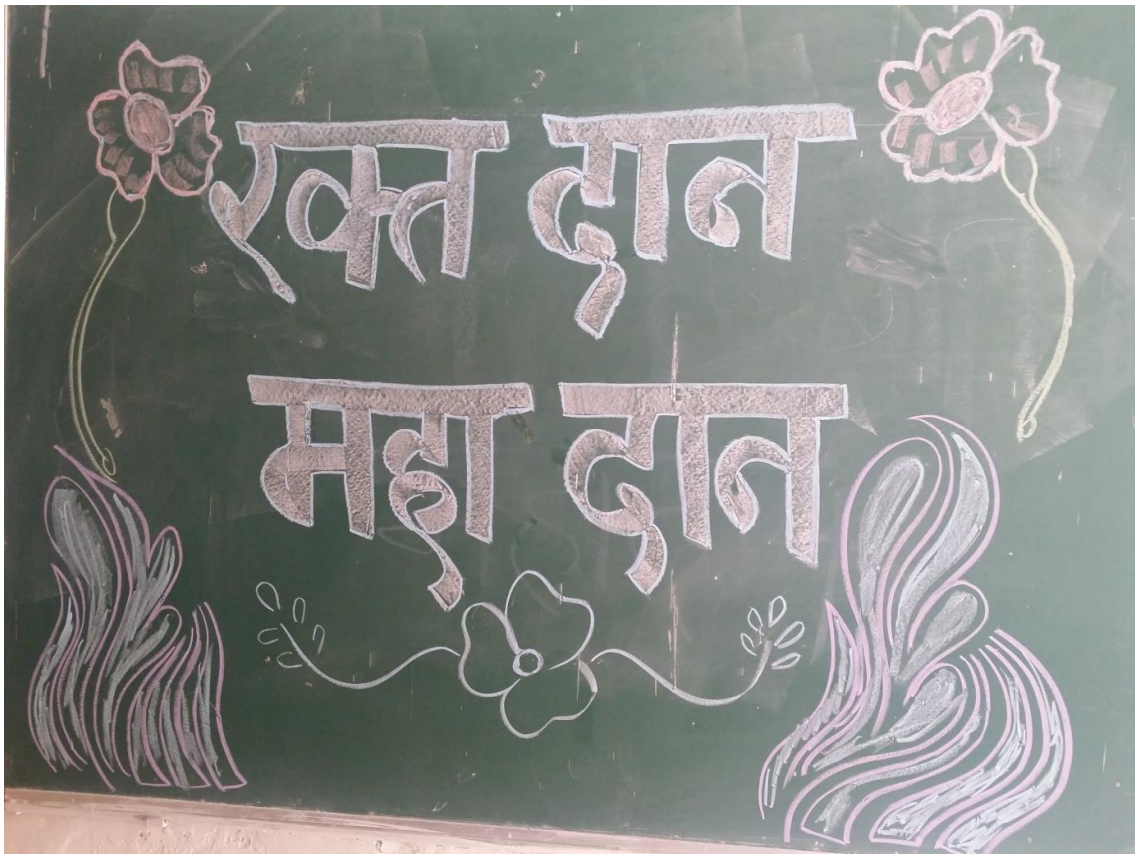 रक्त दान
महा दान